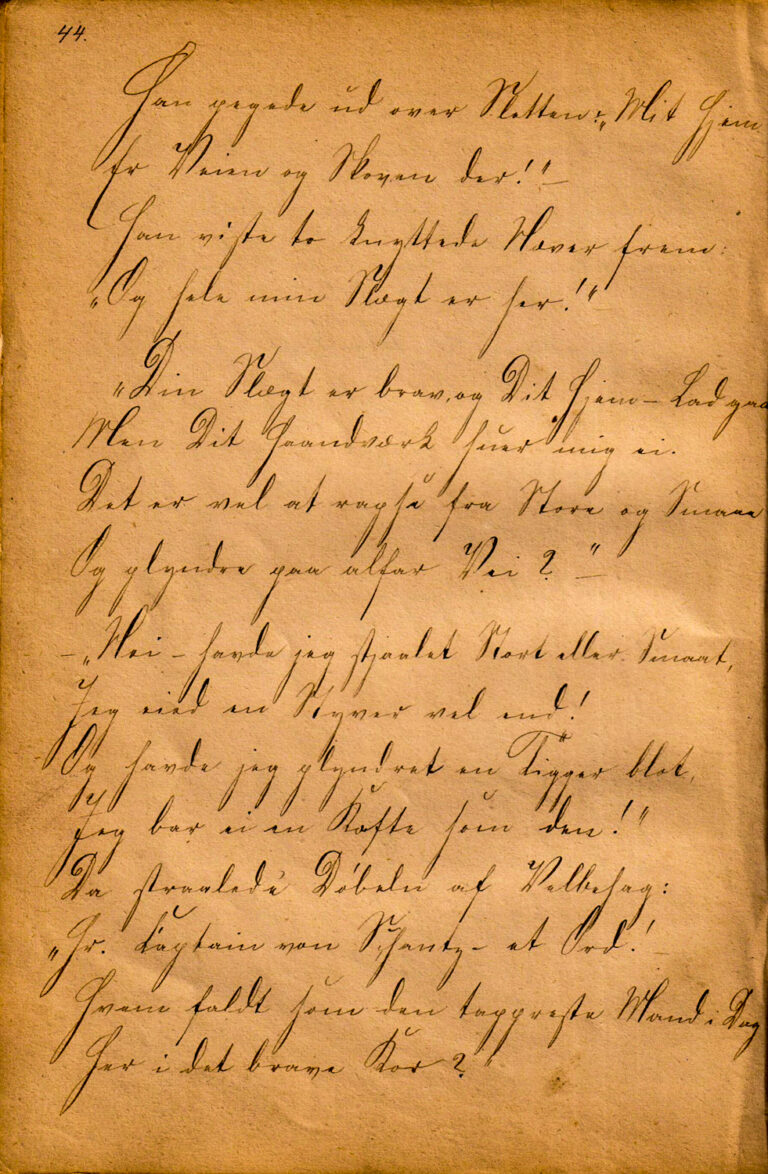 44.
Han pegede ud over Sletten: „Mit Hjem
Er Veien og Skoven der!"–
Han viste to knyttede Næver frem:
„Og hele min Slægt er her!"–
„Din Slægt er brav, og Dit Hjem – Lad gaa
Men Dit Haandværk huer mig ei.
Det er vel at rapse fra Store og Smaae
Og plyndre paa alfar Vei?"–
– „Nei – havde jeg stjaalet Stort eller Smaat,
Jeg eied en Styver vel end!
Og havde jeg plyndret en Tigger blot,
Jeg bar ei en Kofte som den!"
Da straalede Döbeln af Velbehag:
„Hr. Captain von Schantz – et Ord!–
Hvem faldt som den tappreste Mand i Dag
Her i det brave Kor?"